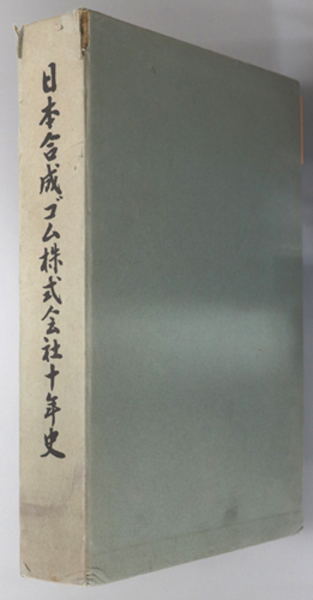 日本合成ゴム株式会社十年史